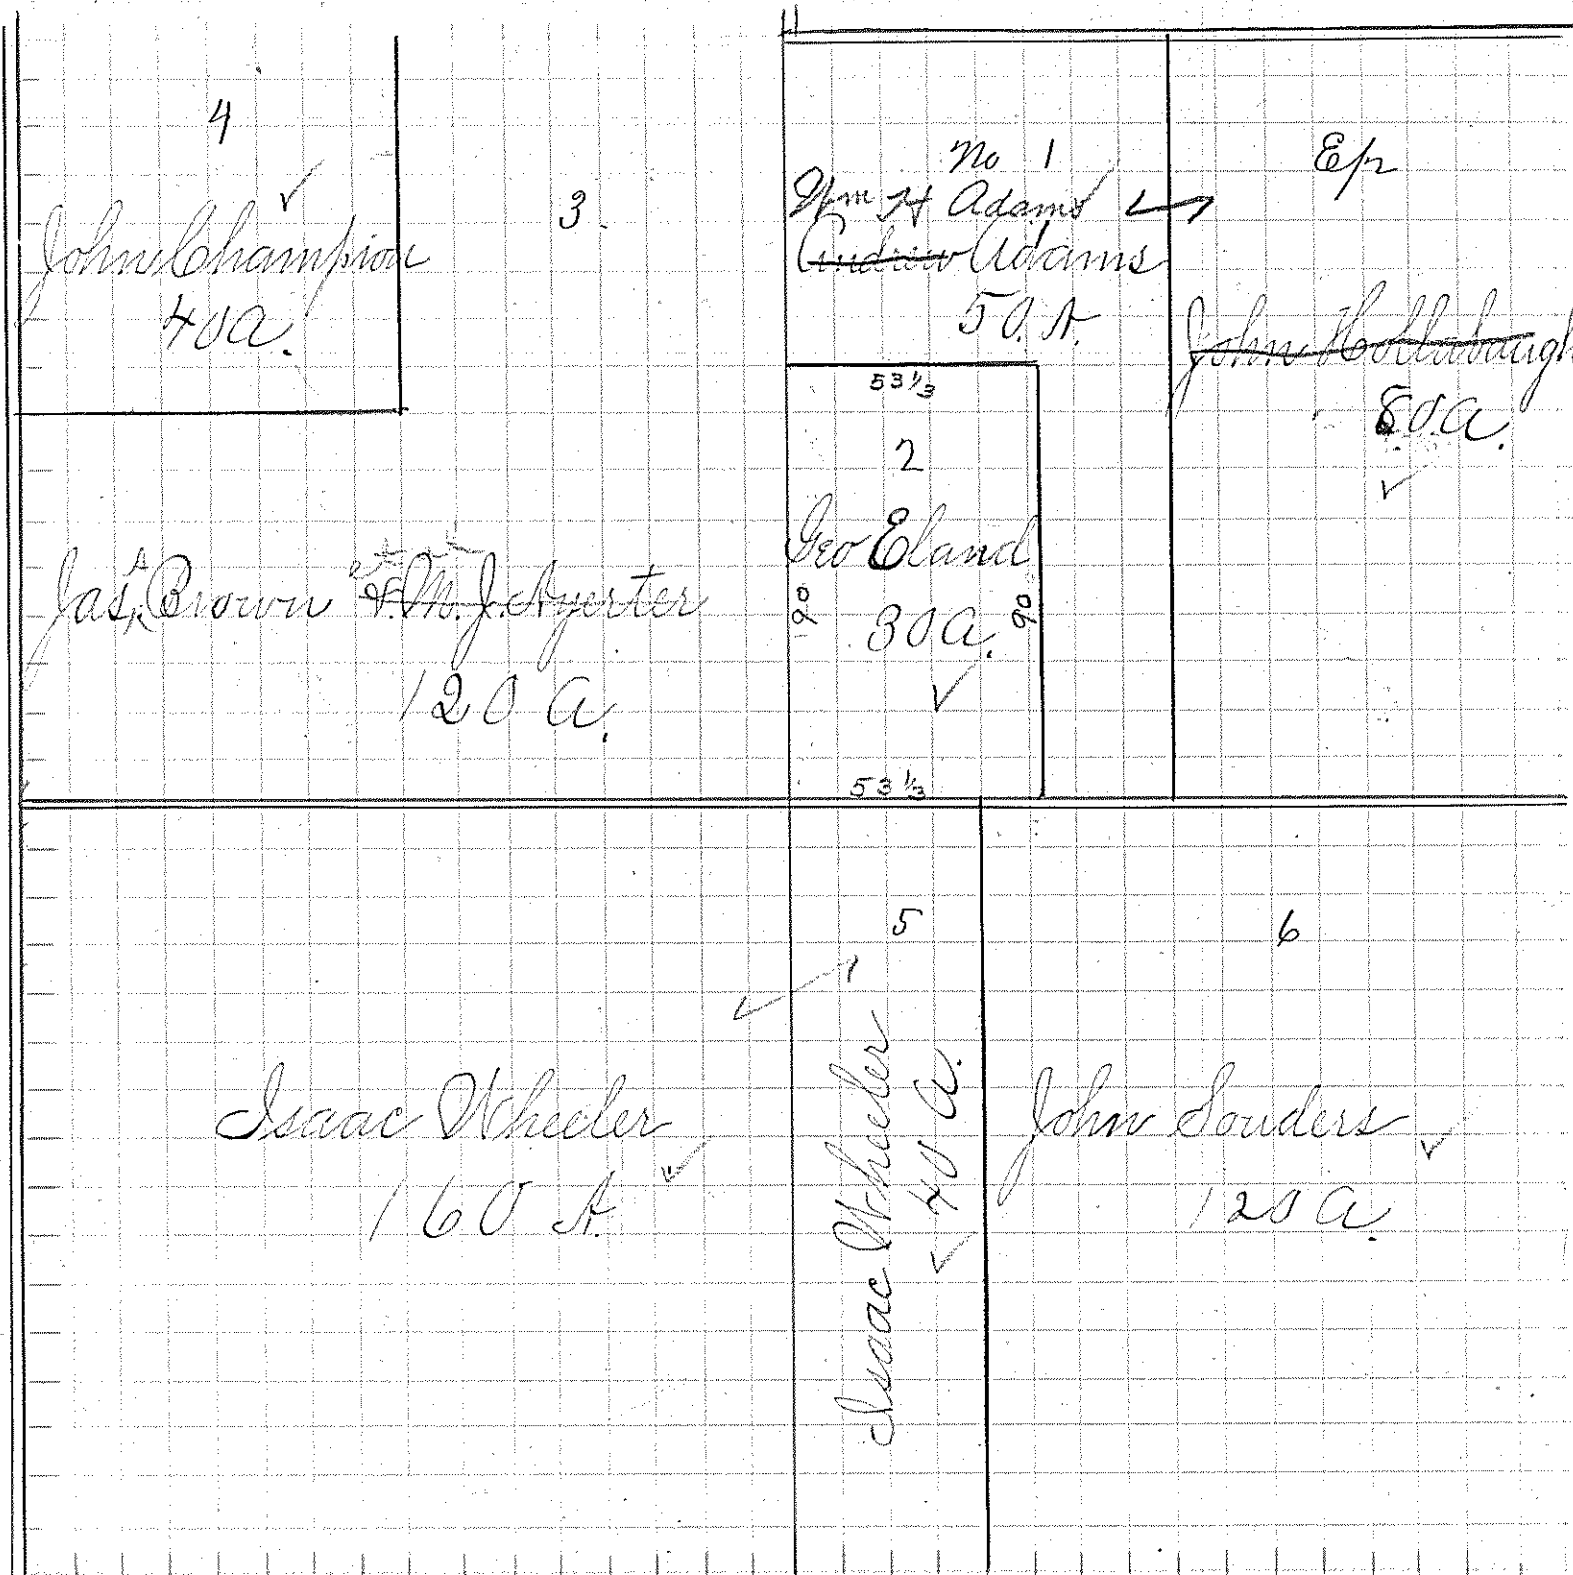 4
John Champion
40 A.
3
No 1
Wm H Adams
Andrew Adams
50. A.
Ep
John Hollabaugh
80 A.
53 1/3
2
Geo Eland
90
30 A.
90
53 1/3
Jas A Brown et al
& M. J. Ayerter
120 A.
5
6
Isaac Wheeler
160 A.
Isaac Wheeler
40 A.
John Souders
120 A.